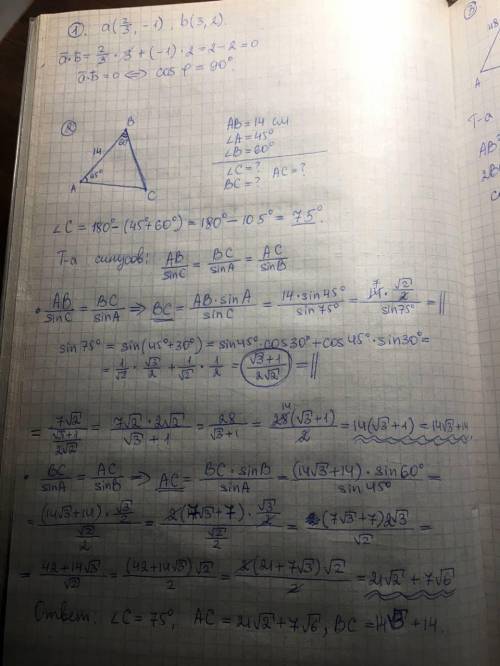 ① a(2/3, -1), b(3, 2).
a̅·b̅ = 2/3 · 3 + (-1)·2 = 2-2 = 0
a̅·b̅ = 0 ⟺ cos φ = 90°.
②
B
60°
14
45°
A
C
AB = 14 см
∠A = 45°
∠B = 60°
∠C = ? AC = ?
BC = ?
∠C = 180° - (45°+60°) = 180° - 105° = 75°.
Т-а синусов: AB/sinC = BC/sinA = AC/sinB
• AB/sinC = BC/sinA ⟹ BC = AB·sinA/sinC = 14·sin45°/sin75° = 14·√2/2/sin75° = ||
sin75° = sin(45°+30°) = sin45°·cos30° + cos45°·sin30° =
= 1/√2 · √3/2 + 1/√2 · 1/2 = (√3+1)/(2√2) = ||
= 7√2/((√3+1)/(2√2)) = 7√2·2√2/(√3+1) = 28/(√3+1) = 28(√3+1)/2 = 14(√3+1) = 14√3+14.
• BC/sinA = AC/sinB ⟹ AC = BC·sinB/sinA = (14√3+14)·sin60°/sin45° =
= (14√3+14)·√3/2/(√2/2) = 2(7√3+7)·√3/2/(√2/2) = (7√3+7)2√3/√2 =
= (42+14√3)/√2 = (42+14√3)√2/2 = 2(21+7√3)√2/2 = 21√2+7√6
Ответ: ∠C = 75°, AC = 21√2+7√6, BC = 14√3+14.
Т-а